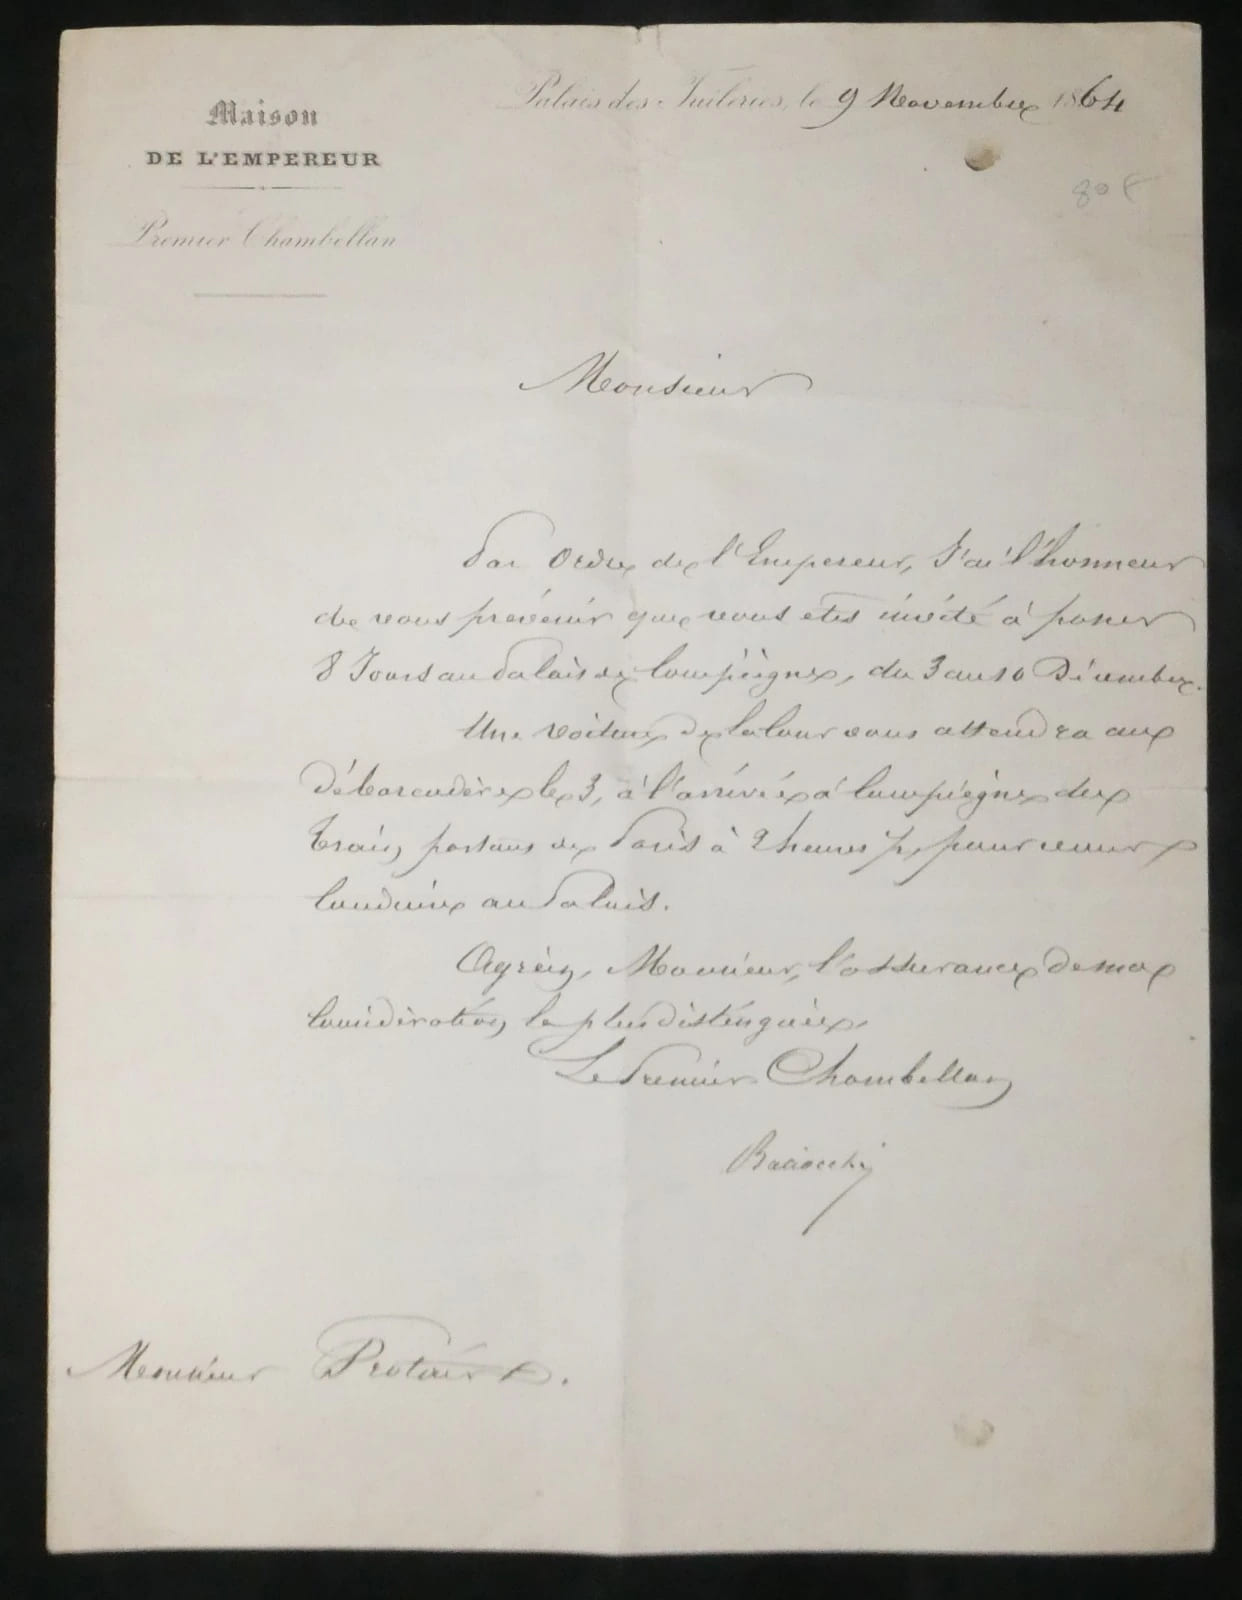 Palais des Tuileries, le 9 Novembre 1864
Maison
DE L'EMPEREUR
Premier Chambellan
80 F
Monsieur
Par Ordre de l'Empereur, J'ai l'honneur
de vous prévenir que vous etes invité à passer
8 Jours au Palais de Compiègne, du 3 au 10 Décembre.
Une Voiture de la Cour vous attendra au
Débarcadère le 3, à l'arrivée à Compiègne du
Train partant de Paris à 2 heures pour vous
Conduire au Palais.
Agréez, Monsieur, l'assurance de ma
Considération la plus distinguée.
Le Premier Chambellan
Bacciochi
Monsieur Protais